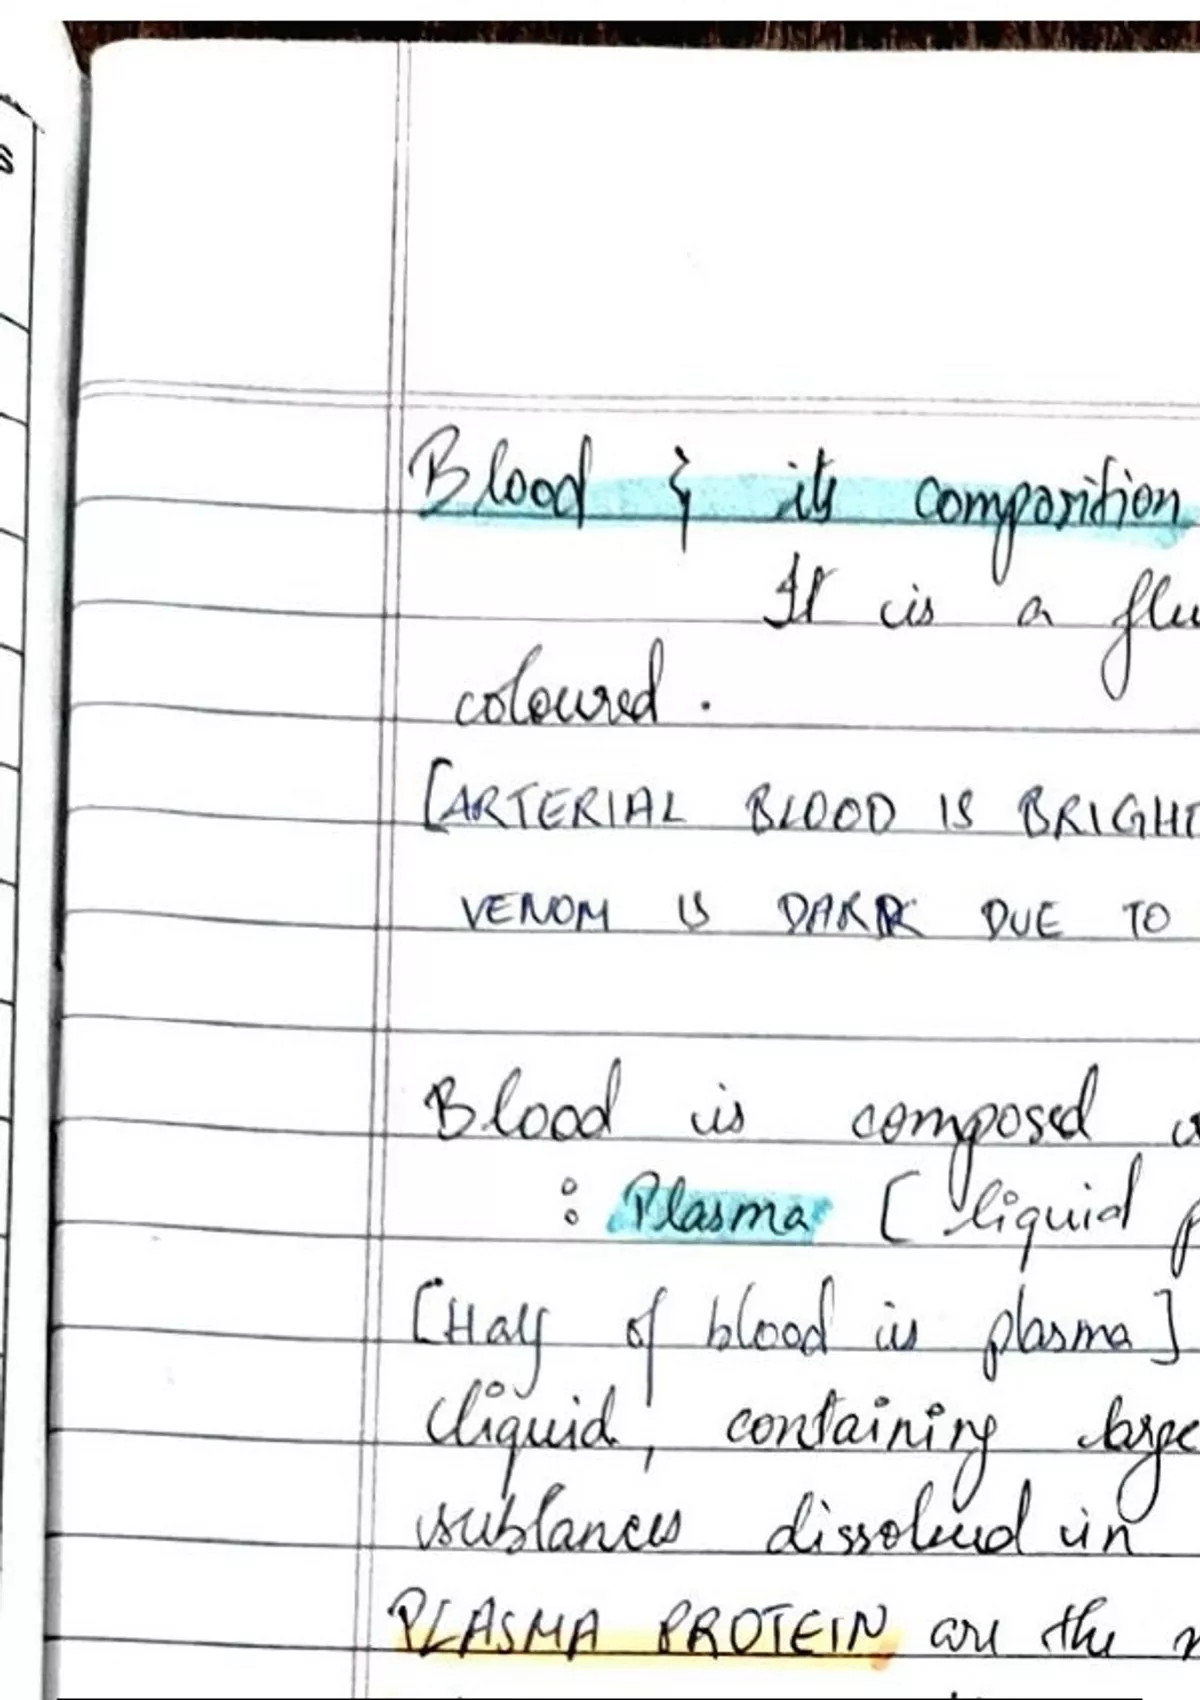 Blood & its composition
It is a flu
coloured.
[ARTERIAL BLOOD IS BRIGHT
VENOM IS DARK DUE TO
Blood is composed
: Plasma [liquid p
[Half of blood is plasma]
liquid, containing large
substances dissolved in
PLASMA PROTEIN are the